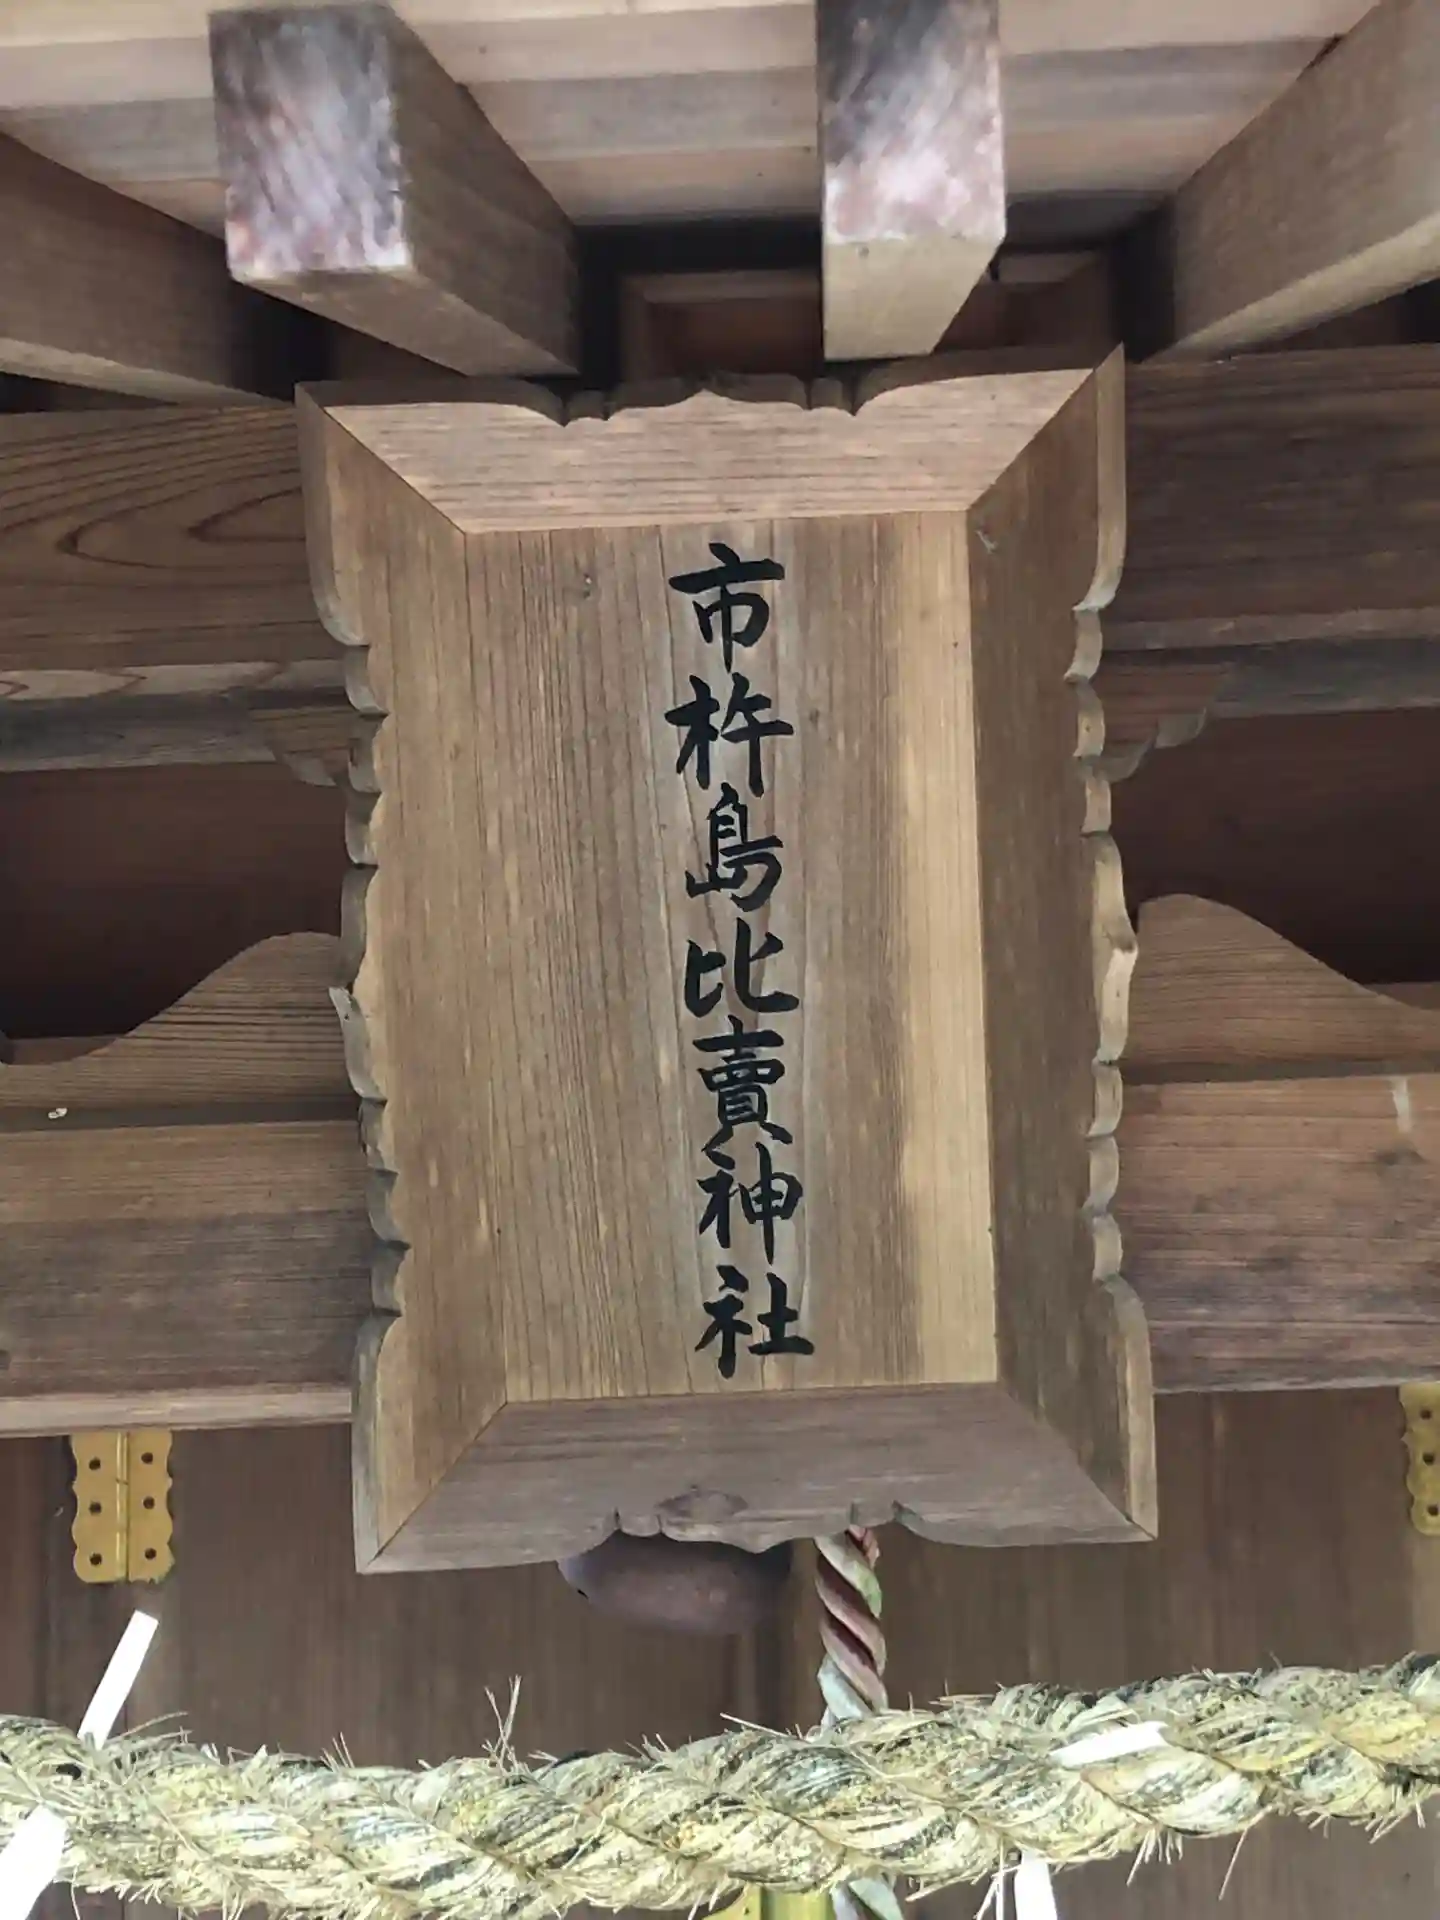 市杵島比賣神社